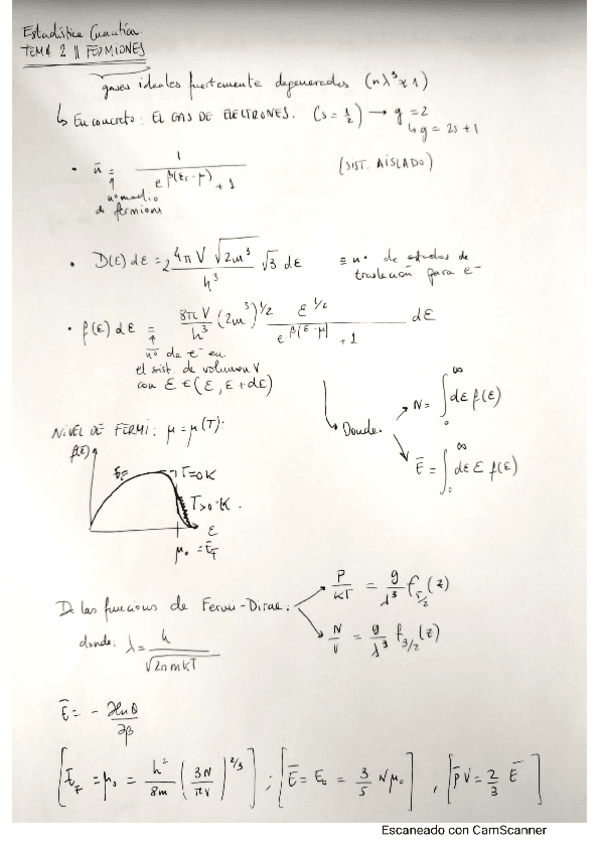 Estadística Cuántica.
TEMA 2 || FERMIONES
gases ideales fuertemente degenerados (nλ³ ≈ 1)
↳ En concreto: EL GAS DE ELECTRONES. (s = 1/2) → g = 2
↳ g = 2s + 1
• n̄ = 1 / (e^{β(ε_r − μ)} + 1) (SIST. AISLADO)
↑
nº medio
de fermions
• D(ε) dε = 2 4πV √(2m³) / h³ √3 dε ≡ nº de estados de
traslación para e⁻
• f(ε) dε = 8πV / h³ (2m³)^{1/2} ε^{1/2} / (e^{β(ε − μ)} + 1) dε
↑
nº de e⁻ en
el sist. de volumen V
con ε ∈ (ε, ε + dε)
↳ Donde.
N = ∫₀^∞ dε f(ε)
Ē = ∫₀^∞ dε ε f(ε)
NIVEL DE FERMI: μ = μ(T).
f(ε)
T = 0K
T > 0K.
ε
μ₀ = E_F
De las funcions de Fermi-Dirac:
P / KT = g / λ³ f_{5/2}(z)
N / V = g / λ³ f_{3/2}(z)
donde: λ = h / √(2πmKT)
Ē = − ∂lnQ / ∂β
[E_F = μ₀ = h² / 8m (3N / πV)^{2/3}] ; [Ē = E₀ = 3/5 Nμ₀] , [p̄V = 2/3 Ē]
Escaneado con CamScanner